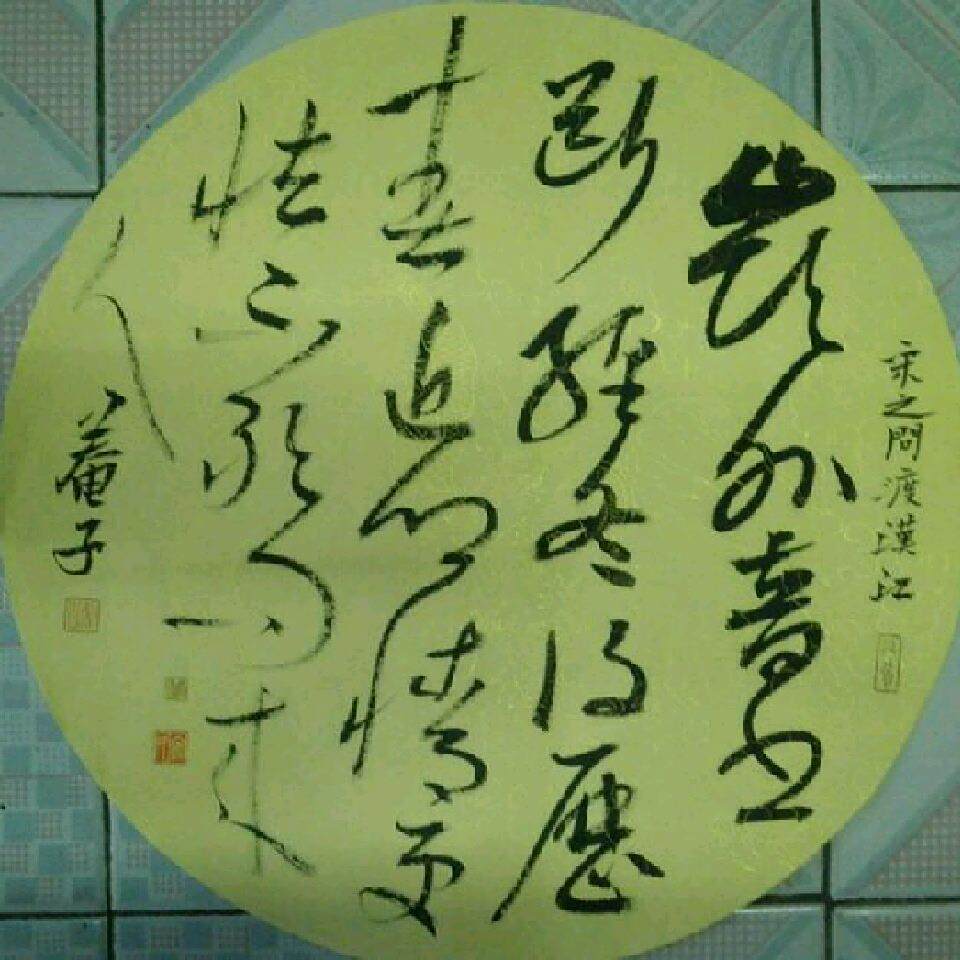 宋之問渡漢江
嶺外音書
斷經冬復歷
春近鄉情更
怯不敢問來
人
菴子